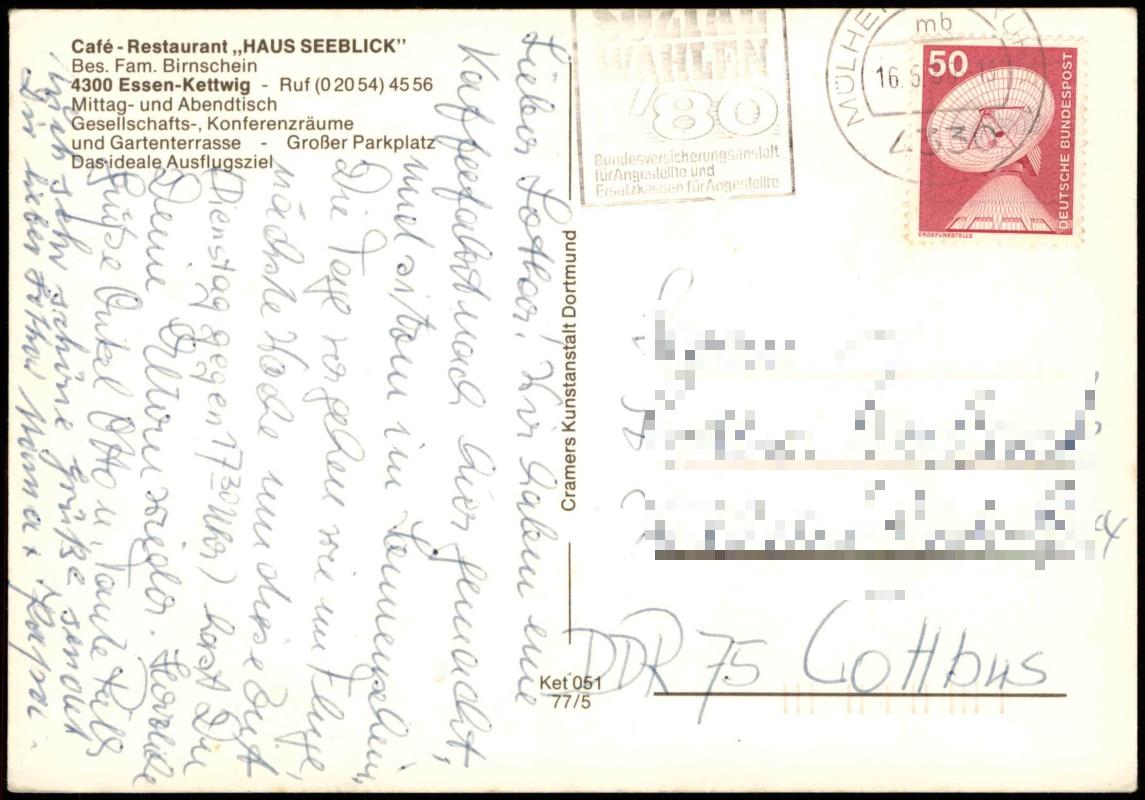 Café - Restaurant „HAUS SEEBLICK”
Bes. Fam. Birnschein
4300 Essen-Kettwig - Ruf (0 20 54) 45 56
Mittag- und Abendtisch
Gesellschafts-, Konferenzräume
und Gartenterrasse - Großer Parkplatz
Das ideale Ausflugsziel
Lieber Lothar! Wir haben eine
Kaffeefahrt nach hier gemacht,
und sitzen im Sonnenschein,
Die Tage vergehen wie im Fluge,
nächste Woche um diese Zeit
Dienstag gegen 17 30 Uhr) hast Du
Deine Eltern wieder. Herzliche
Grüße Onkel Otto u Tante
Auch sehr schöne Grüße senden
Dir lieber Lothar Mama + Papa.
Cramers Kunstanstalt Dortmund
Ket 051
77/5
SOZIAL
WAHLEN
'80
Bundesversicherungsanstalt
für Angestellte und
Ersatzkassen für Angestellte
mb
16.5.
4330
50
DEUTSCHE BUNDESPOST
ERDEFUNKSTELLE
DDR 75 Cottbus